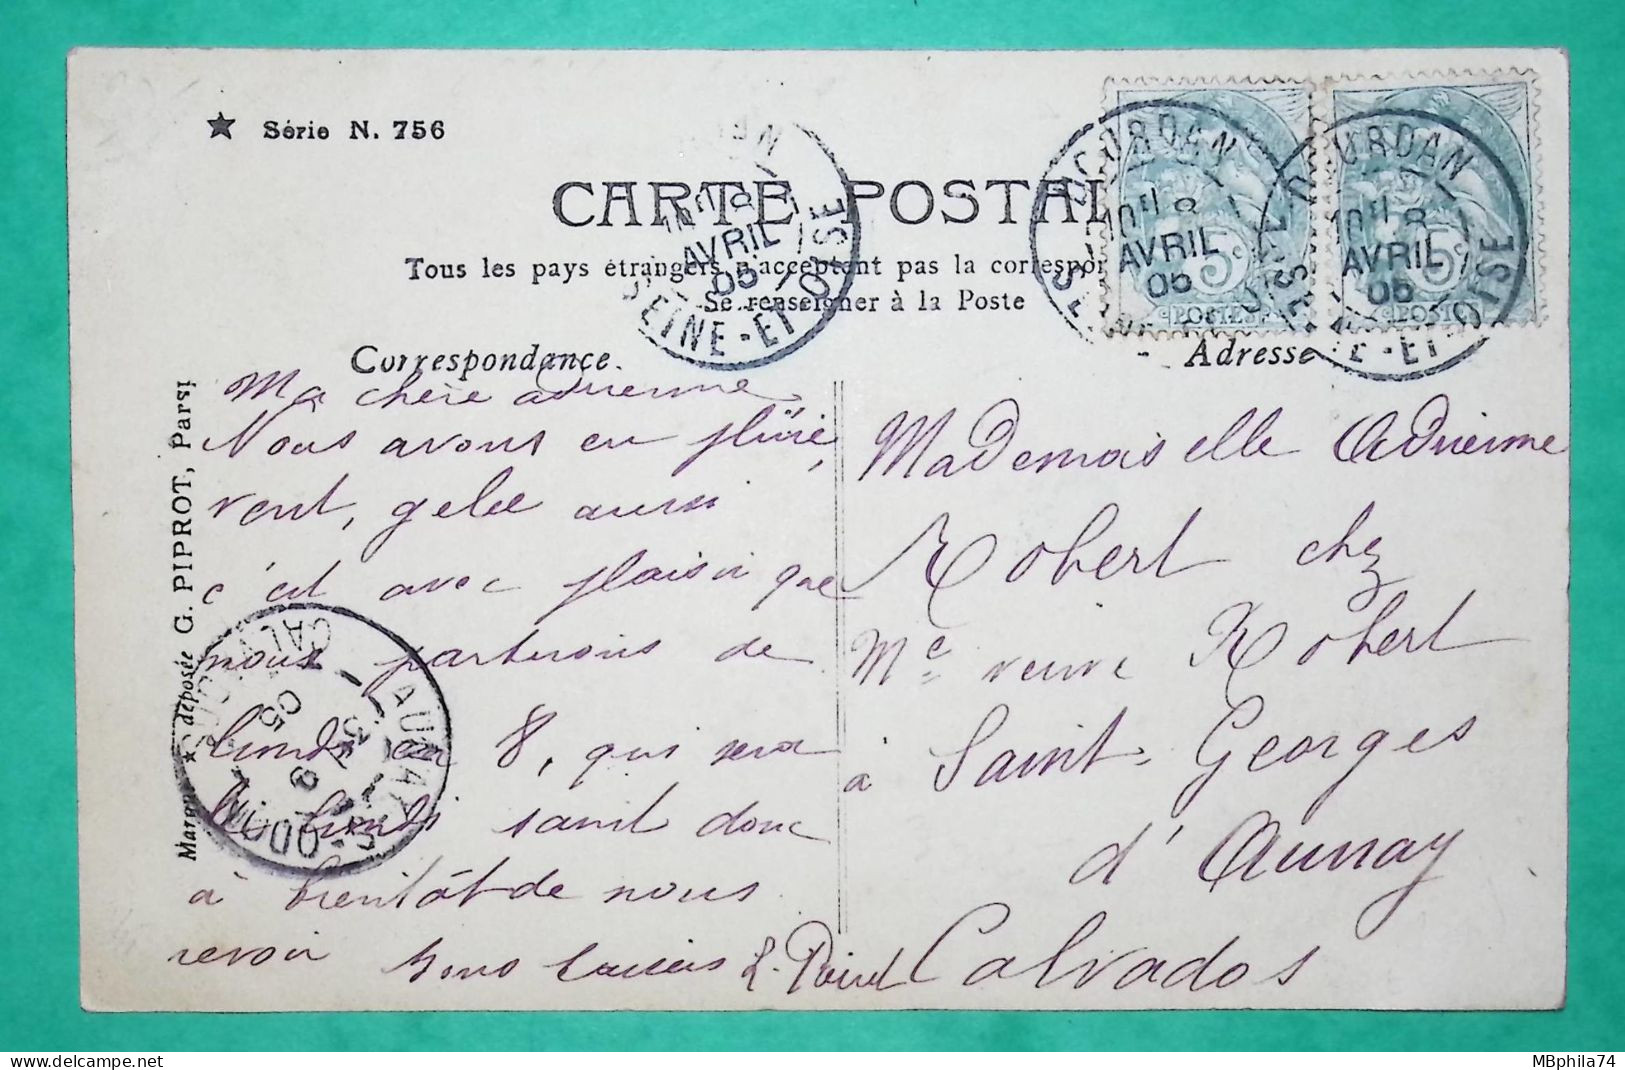 ★ Série N. 756
CARTE POSTAL
Tous les pays étrangers n'acceptent pas la correspon
Se renseigner à la Poste
Correspondance.
Adresse
Marque ★ déposée G. PIPROT, Parsi
DOURDAN
10H 8
AVRIL
05
SEINE-ET-OISE
DOURDAN
10H 8
AVRIL
05
SEINE-ET-OISE
DOURDAN
AVRIL
05
SEINE-ET-OISE
5c
POSTES
5c
POSTES
Ma chère adrienne
Nous avons eu pluie
vent, gelee aussi
c'est avec plaisir que
nous parterons de
lundi en 8, qui sera
le lundi saint donc
à bientôt de nous
revoir bons baisers
Mademoiselle Adrienne
Robert chez
Me veuve Robert
à Saint-Georges
d'Aunay
Calvados
AUNAY
S-ODON
CALV
9
05
MBphila74